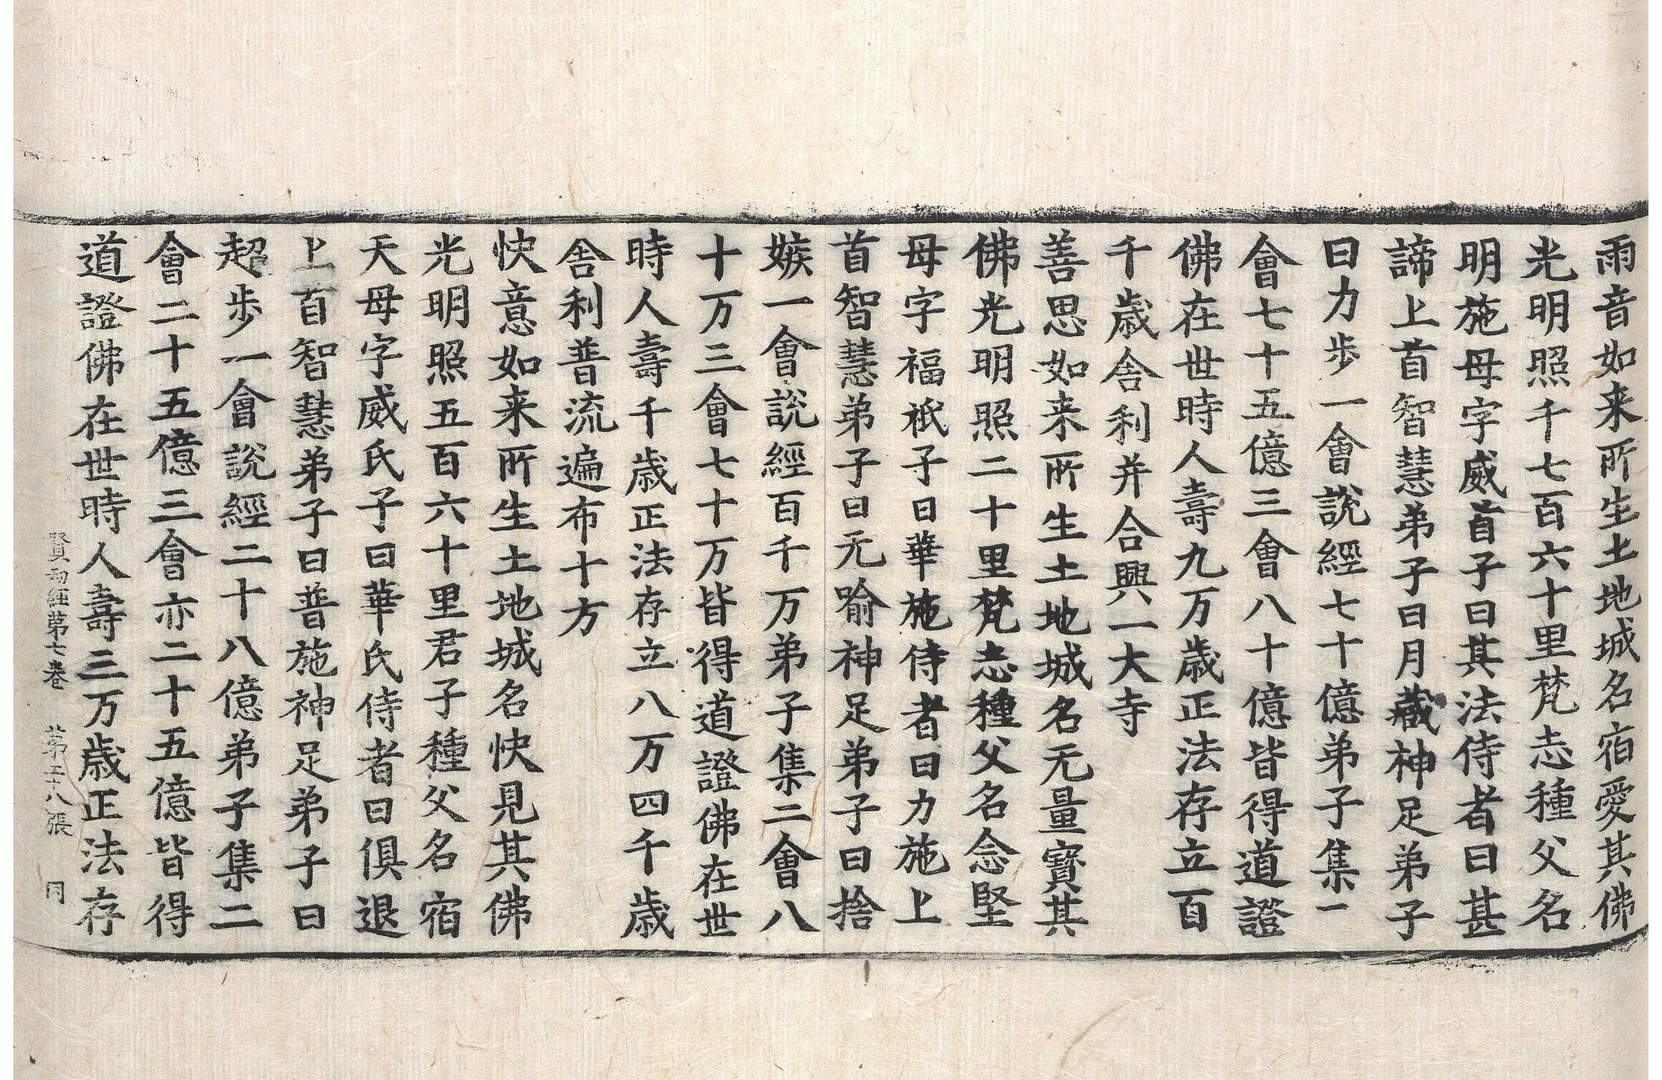 雨音如来所生土地城名宿愛其佛
光明照千七百六十里梵志種父名
明施母字威首子曰其法侍者曰甚
諦上首智慧弟子曰月藏神足弟子
曰力步一會說經七十億弟子集二
會七十五億三會八十億皆得道證
佛在世時人壽九万歲正法存立百
千歲舎利并合興一大寺
善思如来所生土地城名无量寶其
佛光明照二十里梵志種父名念堅
母字福祇子曰華施侍者曰力施上
首智慧弟子曰无喻神足弟子曰捨
嫉一會說經百千万弟子集二會八
十万三會七十万皆得道證佛在世
時人壽千歲正法存立八万四千歲
舎利普流遍布十方
快意如来所生土地城名快見其佛
光明照五百六十里君子種父名宿
天母字威氏子曰華氏侍者曰俱退
上首智慧弟子曰普施神足弟子曰
超步一會說經二十八億弟子集二
會二十五億三會亦二十五億皆得
道證佛在世時人壽三万歲正法存
賢劫經第七卷 第三十八張 同